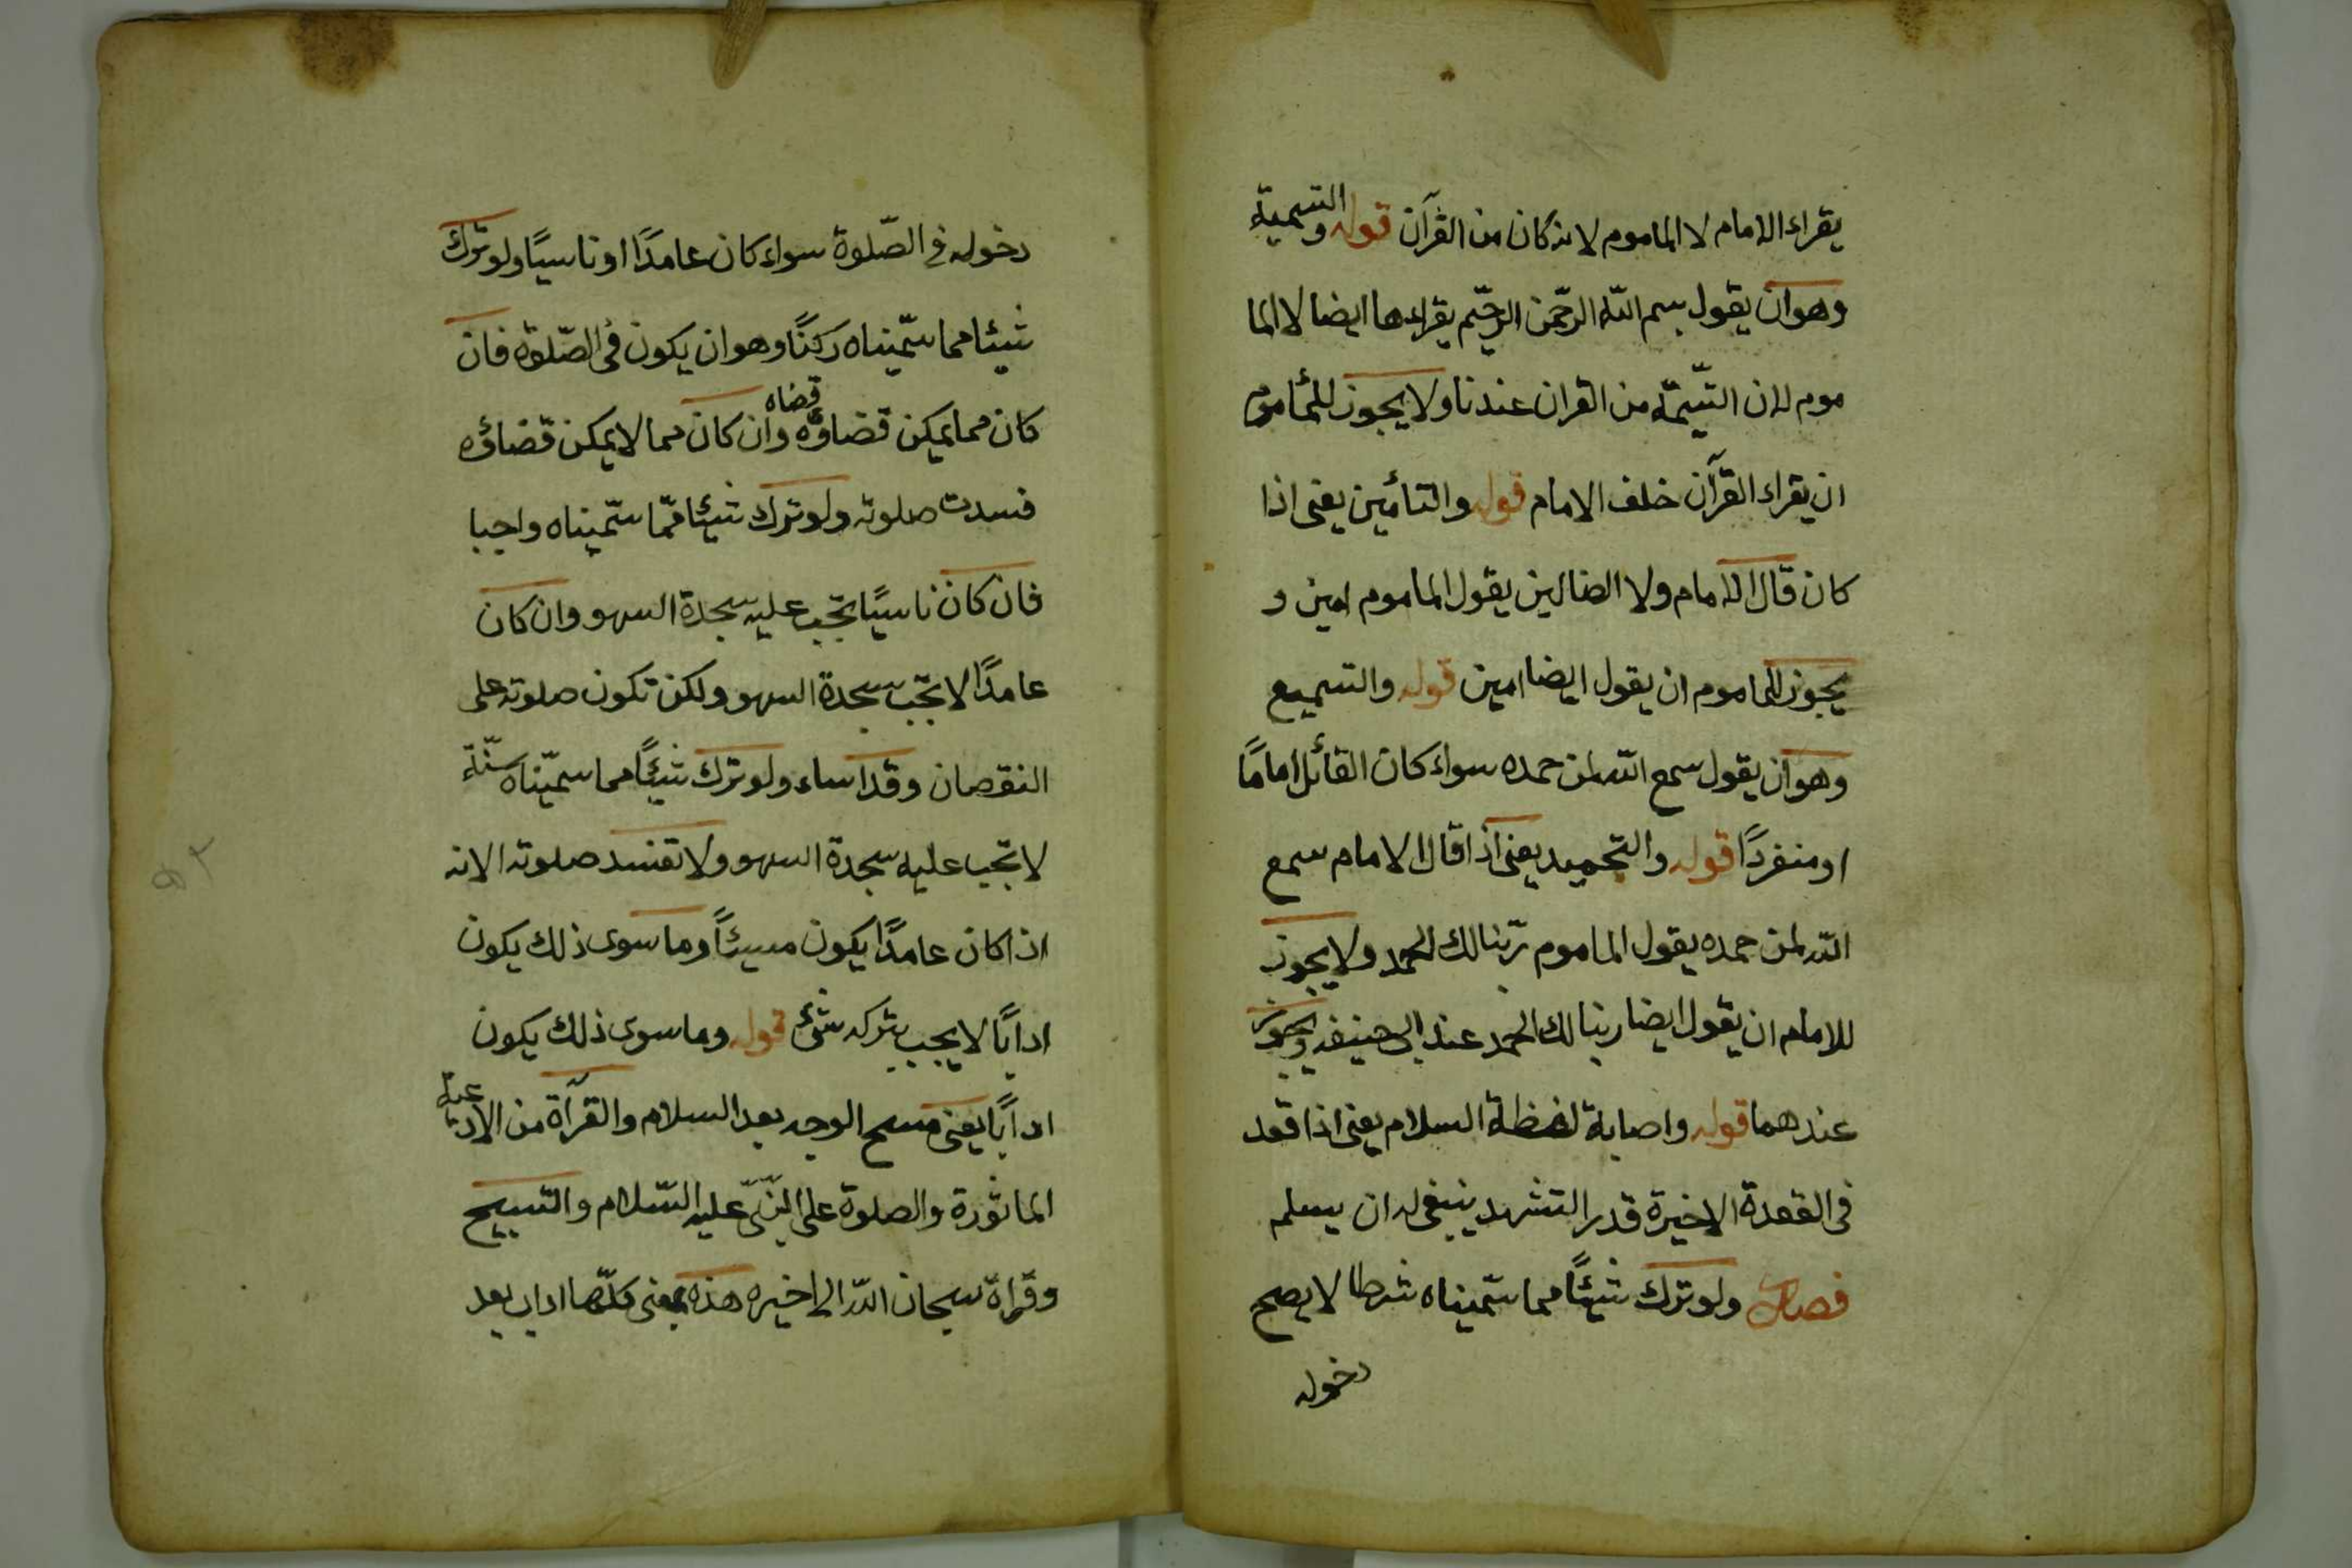 يقراء الامام لا الماموم لانه كان من القرآن قوله والتسمية
وهو ان يقول بسم الله الرحمن الرحيم يقراءها ايضا لا الما
موم لان التسيمّة من القران عندنا ولا يجوز للمأموم
ان يقراء القرآن خلف الامام قوله والتأمين يعنى اذا
كان قال الامام ولا الضالين يقول الماموم امين و
يجوز للماموم ان يقول ايضا امين قوله والتسميع
وهو ان يقول سمع الله لمن حمده سواء كان القائل امامًا
او منفردًا قوله والتحميد يعنى اذا قال الامام سمع
الله لمن حمده يقول الماموم ربّنا لك الحمد ولا يجوز
للامام ان يقول ايضا ربنا لك الحمد عند ابى حنيفه ويجوز
عندهما قوله واصابة لفظة السلام يعنى اذا قعد
فى القعدة الاخيرة قدر التشهد ينبغى له ان يسلم
فصل ولو ترك شيئًا مما سمّيناه شرطا لا يصح
دخوله
دخوله فى الصّلوة سواء كان عامدًا او ناسيًا ولو ترك
شيئا مما سمّيناه ركنًا وهو ان يكون فى الصّلوة فان
كان مما يمكن قضاؤه قضاه وان كان مما لا يمكن قضاؤه
فسدت صلوته ولو ترك شيئا ممّا سمّيناه واجبا
فان كان ناسيًا تجب عليه سجدة السهو وان كان
عامدًا لا تجب سجدة السهو ولكن تكون صلوته على
النقصان وقد اساء ولو ترك شيئًا مما سميّناه سنّة
لا تجب عليه سجدة السهو ولا تفسد صلوته الا انه
اذا كان عامدًا يكون مسيئًا وما سوى ذلك يكون
ادابًا لا يجب بتركه شئ قوله وما سوى ذلك يكون
ادابًا يعنى مسح الوجه بعد السلام والقرآة من الادعية
الماثورة والصلوة على النّبىّ عليه السّلام والتسبيح
وقرأة سبحان الله الى اخيره هذه بمعنى كلّها اداب بعد